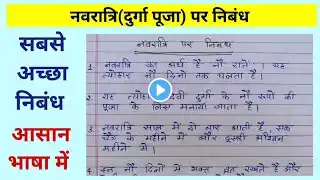 नवरात्रि(दुर्गा पूजा) पर निबंध
सबसे
अच्छा
निबंध
आसान
भाषा में
नवरात्रि पर निबंध
1. नवरात्रि का अर्थ है नौ रातें । यह
त्योहार नौ दिनों तक चलता है।
2. यह त्योहार देवी दुर्गा के नौ रूपों की
पूजा के लिए मनाया जाता है।
3. नवरात्रि साल में दो बार आती है, एक
चैत्र के महीने में और दूसरी अश्विन
महीने में।
4. इन नौ दिनों में भक्त व्रत रखते हैं और